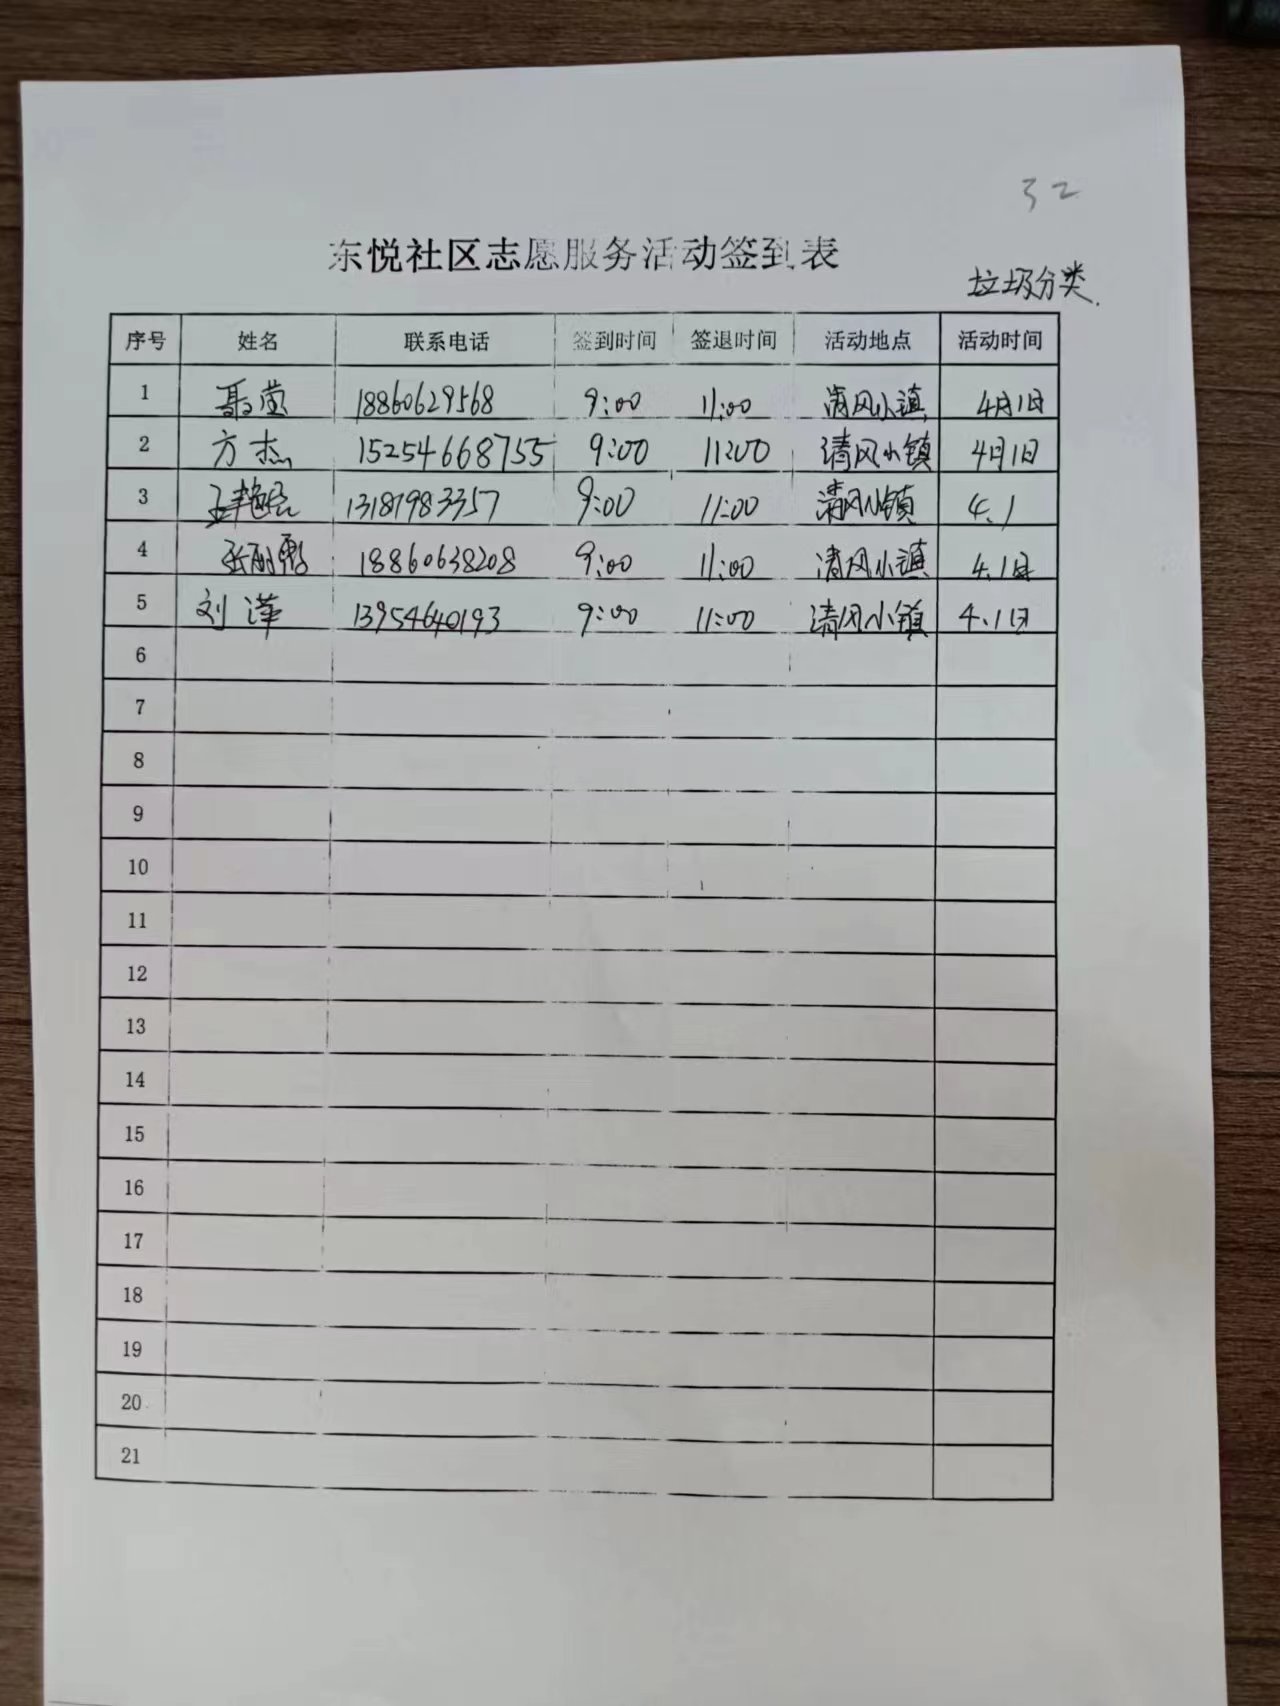 32
东悦社区志愿服务活动签到表
垃圾分类.
序号 姓名 联系电话 签到时间 签退时间 活动地点 活动时间
1 聂莹 18860629568 9:00 11:00 清风小镇 4月1日
2 方杰 15254668755 9:00 11:00 清风小镇 4月1日
3 13181983357 9:00 11:00 清风小镇 4.1
4 张丽霞 18860638208 9:00 11:00 清风小镇 4.1日
5 刘萍 13954640193 9:00 11:00 清风小镇 4.1日
6
7
8
9
10
11
12
13
14
15
16
17
18
19
20
21